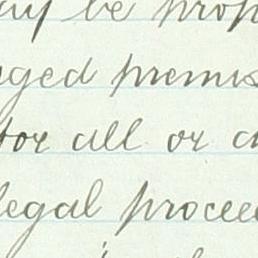 ay be prop
ged premis
for all or a
legal procee